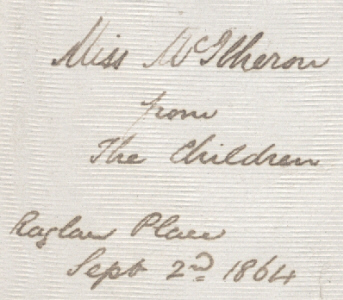 Miss McIlheron
from
The Children
Raglan Place
Sept 2nd 1864